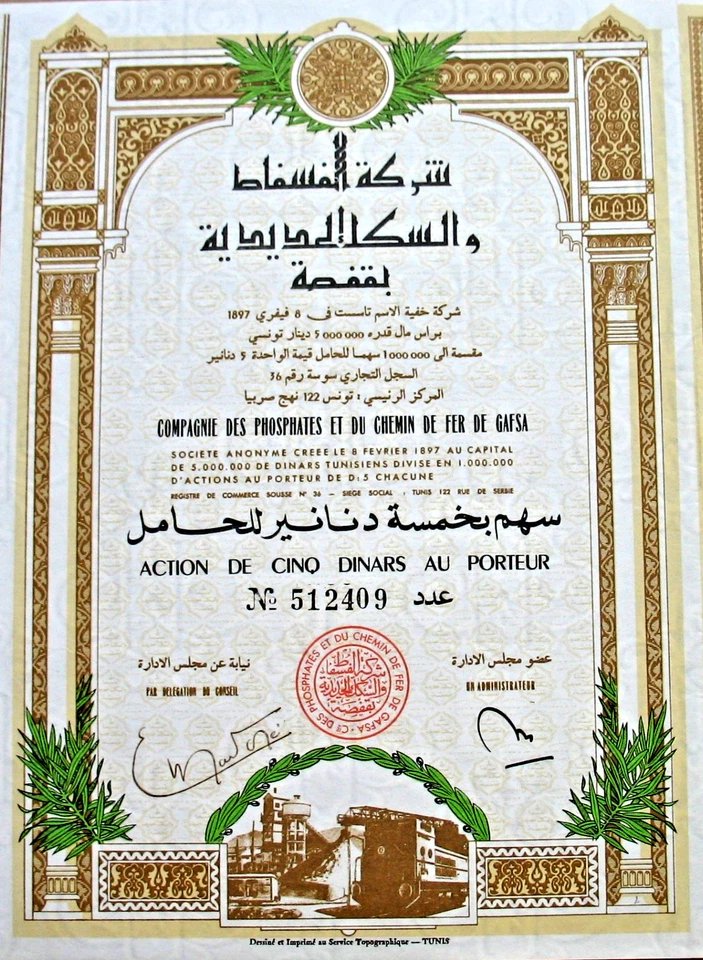 شركة الفسفاط
والسكك الحديدية
بقفصة
شركة خفية الاسم تاسست في 8 فيفري 1897
براس مال قدره 5 000 000 دينار تونسي
مقسمة الى 1 000 000 سهما للحامل قيمة الواحدة 5 دنانير
السجل التجاري سوسة رقم 36
المركز الرئيسي : تونس 122 نهج صربيا
COMPAGNIE DES PHOSPHATES ET DU CHEMIN DE FER DE GAFSA
SOCIETE ANONYME CREEE LE 8 FEVRIER 1897 AU CAPITAL
DE 5.000.000 DE DINARS TUNISIENS DIVISE EN 1.000.000
D'ACTIONS AU PORTEUR DE D: 5 CHACUNE
REGISTRE DE COMMERCE SOUSSE N° 36 - SIEGE SOCIAL : TUNIS 122 RUE DE SERBIE
سهم بخمسة دنانير للحامل
ACTION DE CINQ DINARS AU PORTEUR
№ 512409 عدد
نيابة عن مجلس الادارة
عضو مجلس الادارة
PAR DELEGATION DU CONSEIL
UN ADMINISTRATEUR
Cie DES PHOSPHATES ET DU CHEMIN DE FER DE GAFSA
شركة الفسفاط
والسكك الحديدية
بقفصة
Dessiné et Imprimé au Service Topographique — TUNIS